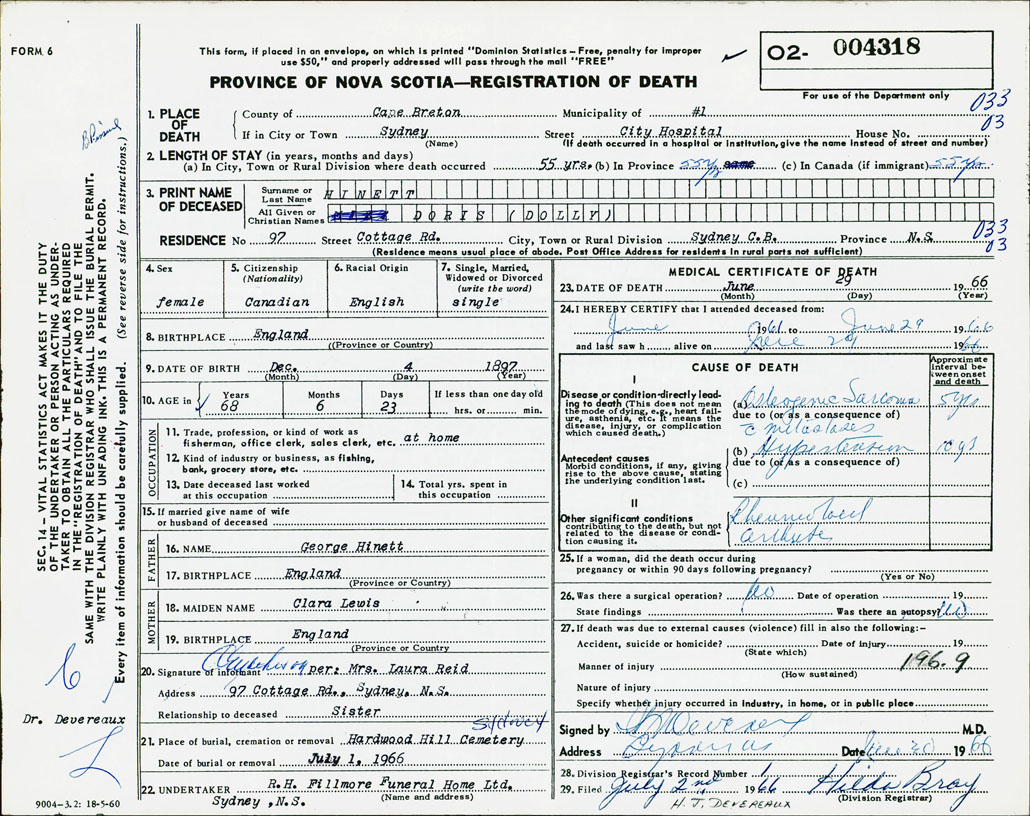 FORM 6
This form, if placed in an envelope, on which is printed "Dominion Statistics – Free, penalty for improper
use $50," and properly addressed will pass through the mail "FREE"
PROVINCE OF NOVA SCOTIA—REGISTRATION OF DEATH
02- 004318
For use of the Department only
033
03
1. PLACE OF DEATH
County of Cape Breton Municipality of #1
If in City or Town Sydney Street City Hospital House No.
(Name) (If death occurred in a hospital or institution, give the name instead of street and number)
2. LENGTH OF STAY (in years, months and days)
(a) In City, Town or Rural Division where death occurred 55 yrs. (b) In Province 55 yrs (c) In Canada (if immigrant) 55 yrs.
3. PRINT NAME OF DECEASED
Surname or Last Name HINETT
All Given or Christian Names DORIS (DOLLY)
RESIDENCE No 97 Street Cottage Rd. City, Town or Rural Division Sydney C.B. Province N.S.
033
03
(Residence means usual place of abode. Post Office Address for residents in rural parts not sufficient)
4. Sex
female
5. Citizenship
(Nationality)
Canadian
6. Racial Origin
English
7. Single, Married,
Widowed or Divorced
(write the word)
single
8. BIRTHPLACE England
((Province or Country)
9. DATE OF BIRTH Dec. 4 1897
(Month) (Day) (Year)
10. AGE in
Years
68
Months
6
Days
23
If less than one day old
hrs. or min.
OCCUPATION
11. Trade, profession, or kind of work as
fisherman, office clerk, sales clerk, etc. at home
12. Kind of industry or business, as fishing,
bank, grocery store, etc.
13. Date deceased last worked
at this occupation
14. Total yrs. spent in
this occupation
15. If married give name of wife
or husband of deceased
FATHER
16. NAME George Hinett
17. BIRTHPLACE England
(Province or Country)
MOTHER
18. MAIDEN NAME Clara Lewis
19. BIRTHPLACE England
(Province or Country)
20. Signature of informant per: Mrs. Laura Reid
Address 97 Cottage Rd., Sydney, N.S.
Relationship to deceased Sister
Sydney
21. Place of burial, cremation or removal Hardwood Hill Cemetery
Date of burial or removal July 1, 1966
22. UNDERTAKER R.H. Fillmore Funeral Home Ltd.
Sydney, N.S. (Name and address)
MEDICAL CERTIFICATE OF DEATH
23. DATE OF DEATH June 29 1966
(Month) (Day) (Year)
24. I HEREBY CERTIFY that I attended deceased from:
June 1961 to June 29 1966
and last saw h alive on June 29 1966
CAUSE OF DEATH
Approximate interval between onset and death
I
Disease or condition directly leading to death (This does not mean the mode of dying, e.g., heart failure, asthenia, etc. It means the disease, injury, or complication which caused death.)
(a) Osteogenic Sarcoma 5 yrs
due to (or as a consequence of)
c metastases
(b) Hypertension
due to (or as a consequence of)
(c)
Antecedent causes
Morbid conditions, if any, giving rise to the above cause, stating the underlying condition last.
II
Other significant conditions contributing to the death, but not related to the disease or condition causing it.
Rheumatoid
arthritis
25. If a woman, did the death occur during
pregnancy or within 90 days following pregnancy?
(Yes or No)
26. Was there a surgical operation? No Date of operation 19
State findings Was there an autopsy? No
27. If death was due to external causes (violence) fill in also the following:-
Accident, suicide or homicide? Date of injury 19
(State which)
Manner of injury 196.9
(How sustained)
Nature of injury
Specify whether injury occurred in industry, in home, or in public place
Signed by M.D.
Address Date June 30 1966
28. Division Registrar's Record Number 1
29. Filed July 2nd 1966 Hilda Bray
H.J. DEVEREAUX (Division Registrar)
SEC. 14 – VITAL STATISTICS ACT MAKES IT THE DUTY
OF THE UNDERTAKER OR PERSON ACTING AS UNDERTAKER TO OBTAIN ALL THE PARTICULARS REQUIRED
IN THE "REGISTRATION OF DEATH" AND TO FILE THE
SAME WITH THE DIVISION REGISTRAR WHO SHALL ISSUE THE BURIAL PERMIT.
WRITE PLAINLY WITH UNFADING INK. THIS IS A PERMANENT RECORD.
Every item of information should be carefully supplied. (See reverse side for instructions.)
Dr. Devereaux
9004-3.2: 18-5-60